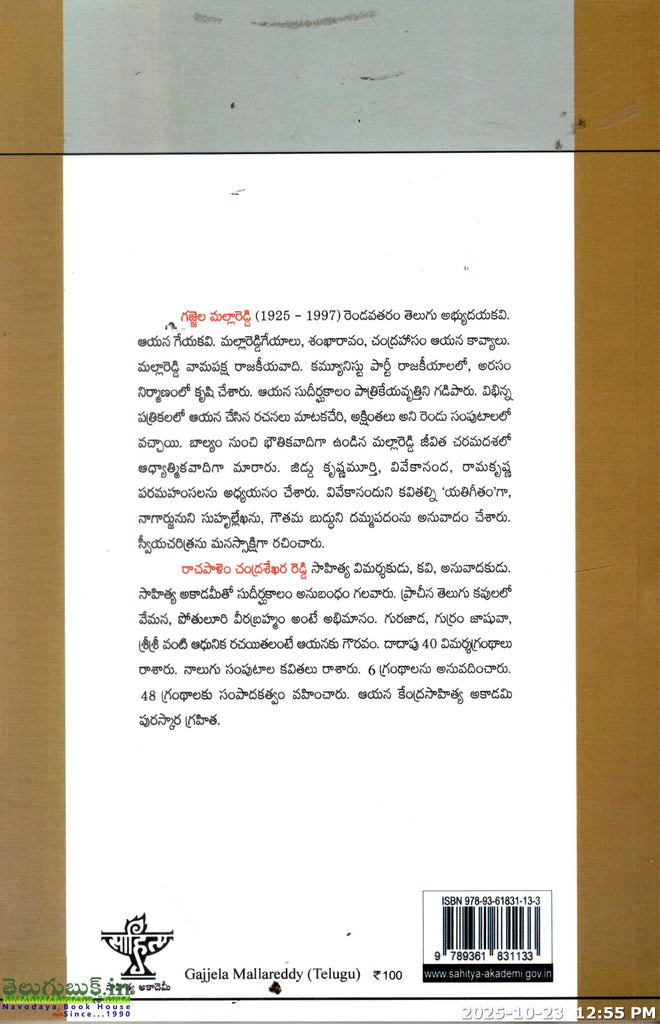 గజ్జెల మల్లారెడ్డి (1925 - 1997) రెండవతరం తెలుగు అభ్యుదయకవి.
ఆయన గేయకవి. మల్లారెడ్డిగేయాలు, శంఖారావం, చంద్రహాసం ఆయన కావ్యాలు.
మల్లారెడ్డి వామపక్ష రాజకీయవాది. కమ్యూనిస్టు పార్టీ రాజకీయాలలో, అరసం
నిర్మాణంలో కృషి చేశారు. ఆయన సుదీర్ఘకాలం పాత్రికేయవృత్తిని గడిపారు. విభిన్న
పత్రికలలో ఆయన చేసిన రచనలు మాటకచేరి, అక్షింతలు అని రెండు సంపుటాలలో
వచ్చాయి. బాల్యం నుంచి భౌతికవాదిగా ఉండిన మల్లారెడ్డి జీవిత చరమదశలో
ఆధ్యాత్మికవాదిగా మారారు. జిడ్డు కృష్ణమూర్తి, వివేకానంద, రామకృష్ణ
పరమహంసలను అధ్యయనం చేశారు. వివేకానందుని కవితల్ని ‘యతిగీతం’గా,
నాగార్జునుని సుహృల్లేఖను, గౌతమ బుద్ధుని దమ్మపదంను అనువాదం చేశారు.
స్వీయచరిత్రను మనస్సాక్షిగా రచించారు.
రాచపాళెం చంద్రశేఖర రెడ్డి సాహిత్య విమర్శకుడు, కవి, అనువాదకుడు.
సాహిత్య అకాడమీతో సుదీర్ఘకాలం అనుబంధం గలవారు. ప్రాచీన తెలుగు కవులలో
వేమన, పోతులూరి వీరబ్రహ్మం అంటే అభిమానం. గురజాడ, గుర్రం జాషువా,
శ్రీశ్రీ వంటి ఆధునిక రచయితలంటే ఆయనకు గౌరవం. దాదాపు 40 విమర్శగ్రంథాలు
రాశారు. నాలుగు సంపుటాల కవితలు రాశారు. 6 గ్రంథాలను అనువదించారు.
48 గ్రంథాలకు సంపాదకత్వం వహించారు. ఆయన కేంద్రసాహిత్య అకాడమి
పురస్కార గ్రహిత.
साहित्य
సాహిత్య అకాడెమీ
Gajjela Mallareddy (Telugu) ₹100
ISBN 978-93-61831-13-3
9 789361 831133
www.sahitya-akademi.gov.in
తెలుగుబుక్.in
Navodaya Book House
Since...1990
2025-10-23 12:55 PM